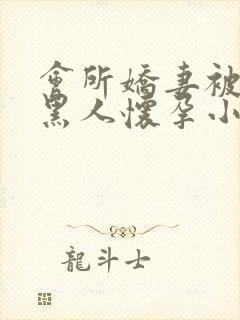 會所嬌妻被
黑人懷孕小
龍斗士